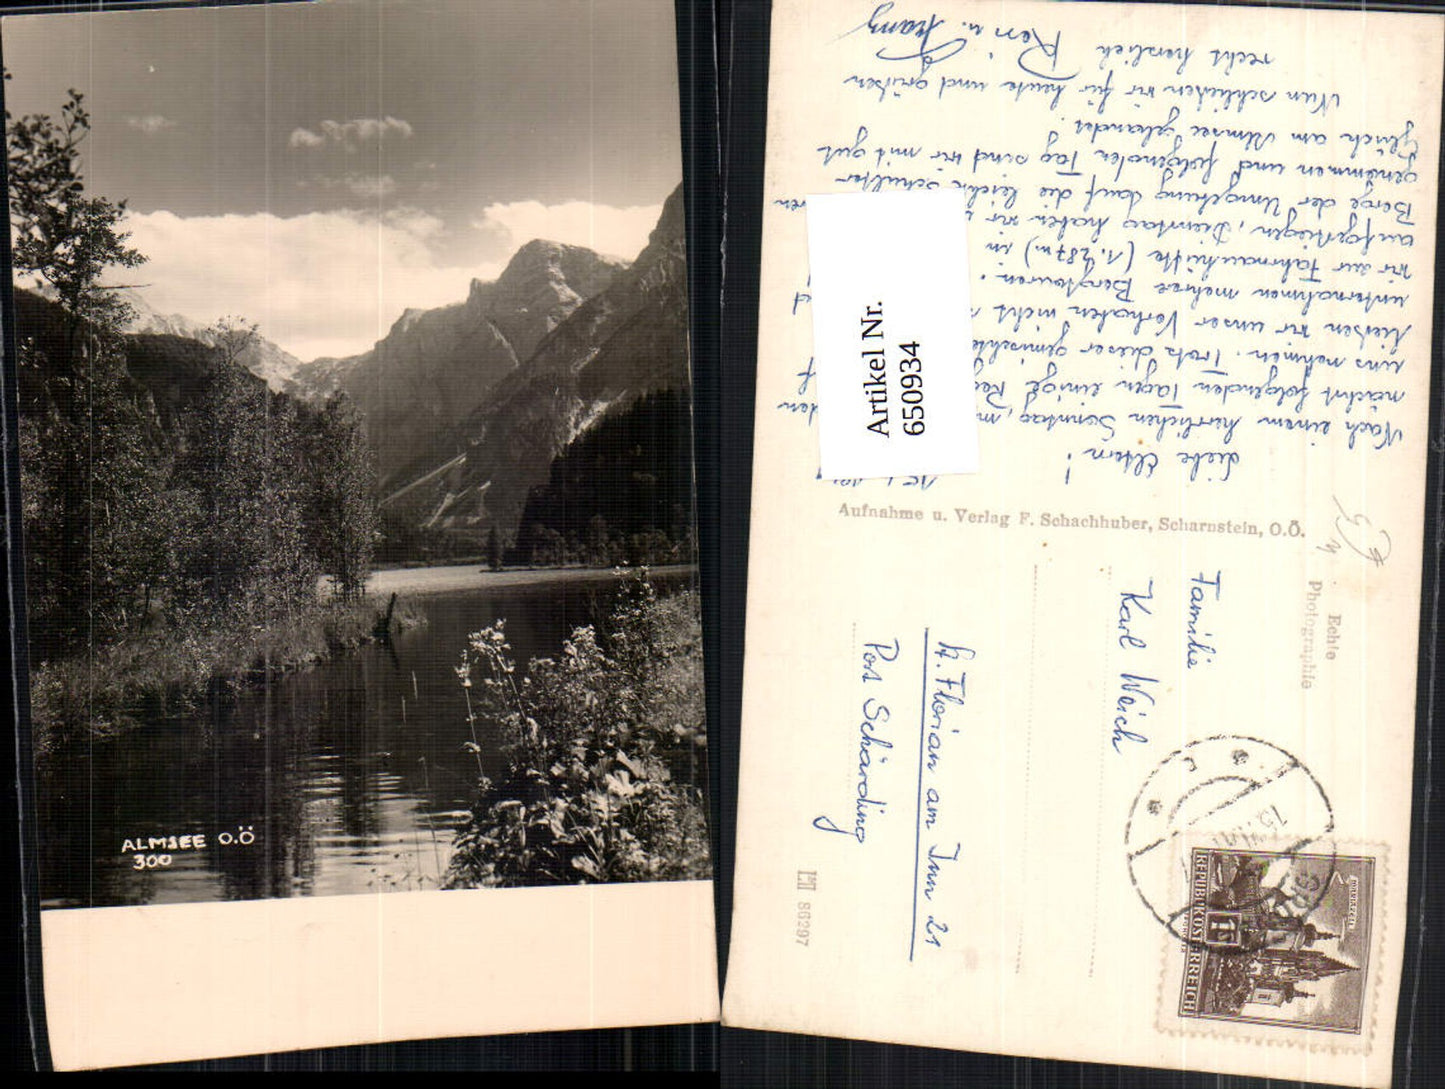 ALMSEE O.Ö
300
Artikel Nr.
650934
Liebe Eltern!
Nach einem herrlichen Sonntag,
nächst folgenden Tagen einige
uns nahmen. Trotz dieser gemischte
liessen wir unser Vorhaben nicht
unternahmen mehrere Bergtouren.
wir zur Farnauhütte (1.287m) in
aufgestiegen, Dienstag haben wir
Berge der Umgebung auf die leichte Schulter
genommen und folgenden Tag sind wir mit gut
Glück am Almsee gelandet.
Nun schließen wir für heute und grüßen
recht herzlich Resi u. Franz
Aufnahme u. Verlag F. Schachhuber, Scharnstein, O.Ö.
Echte
Photographie
Familie
Karl Weich
St. Florian am Inn 21
Pos Schärding
86297
REPUBLIK ÖSTERREICH
MARIAZELL